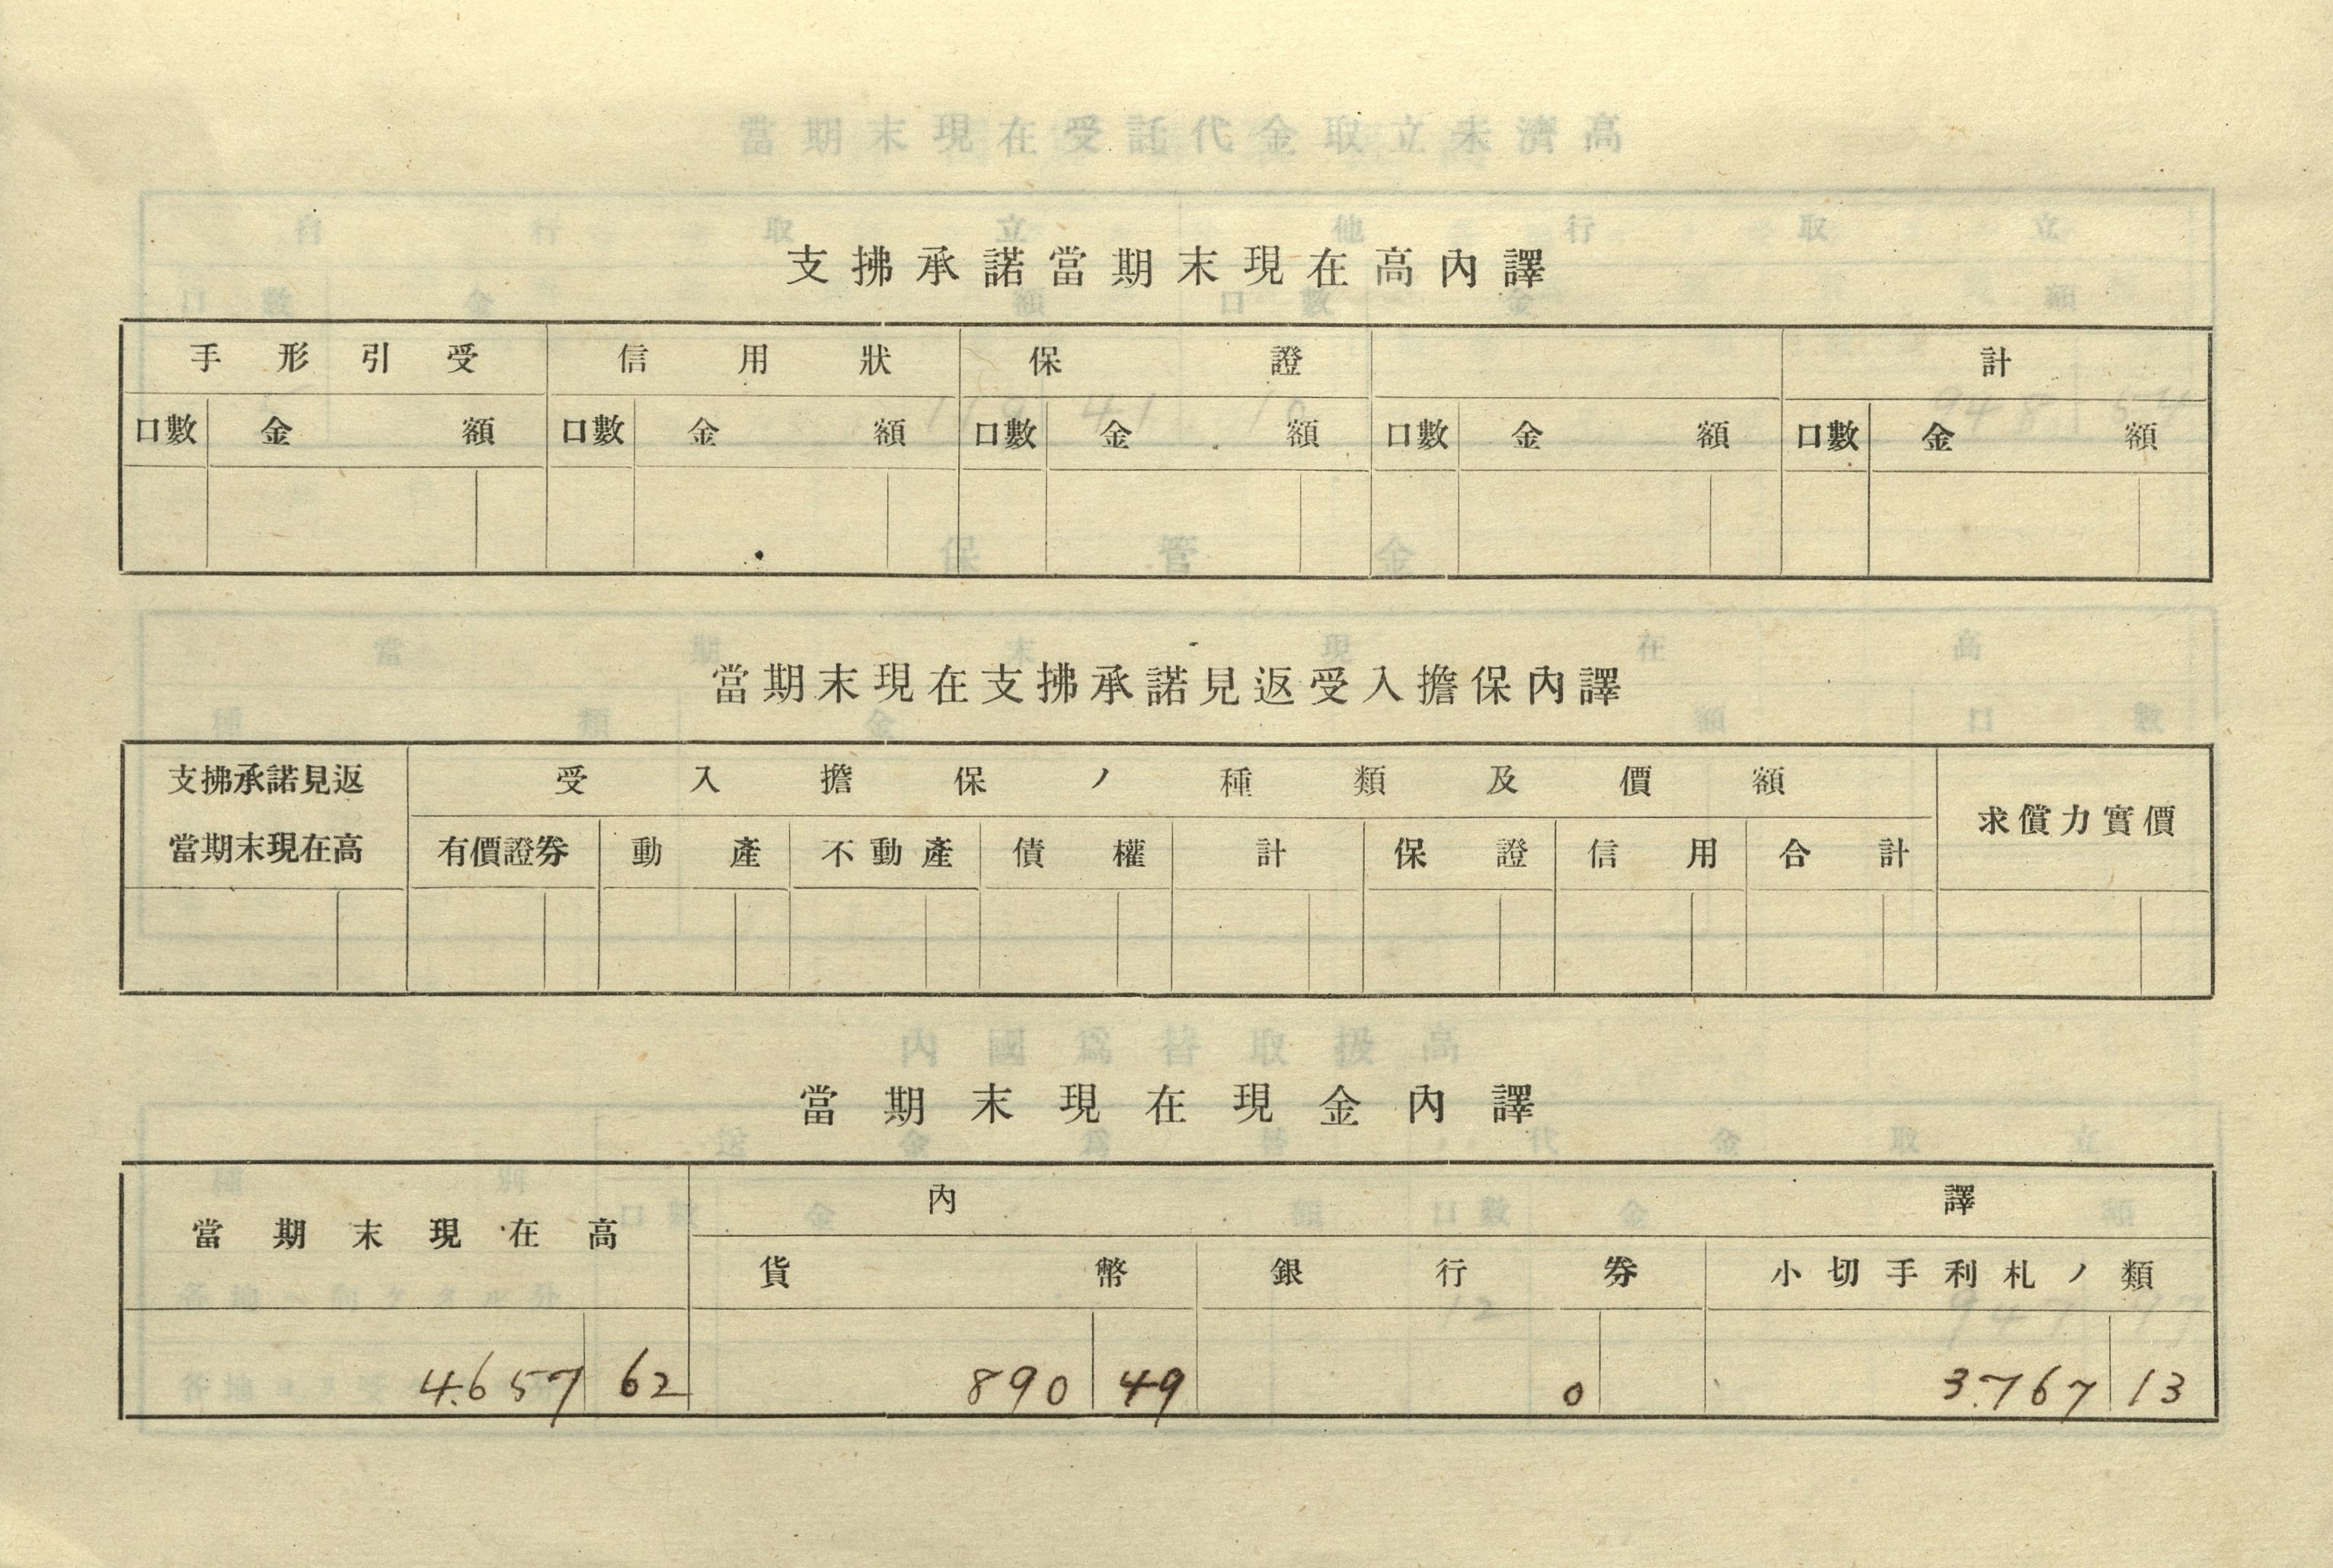 支拂承諾當期末現在高內譯
手形引受 信用狀 保證 計
口數 金額 口數 金額 口數 金額 口數 金額 口數 金額
當期末現在支拂承諾見返受入擔保內譯
支拂承諾見返 受入擔保ノ種類及價額
當期末現在高 有價證券 動產 不動產 債權 計 保證 信用 合計 求償力實價
當期末現在現金內譯
內譯
當期末現在高
貨幣 銀行券 小切手利札ノ類
4.657 62 890 49 0 3.767 13